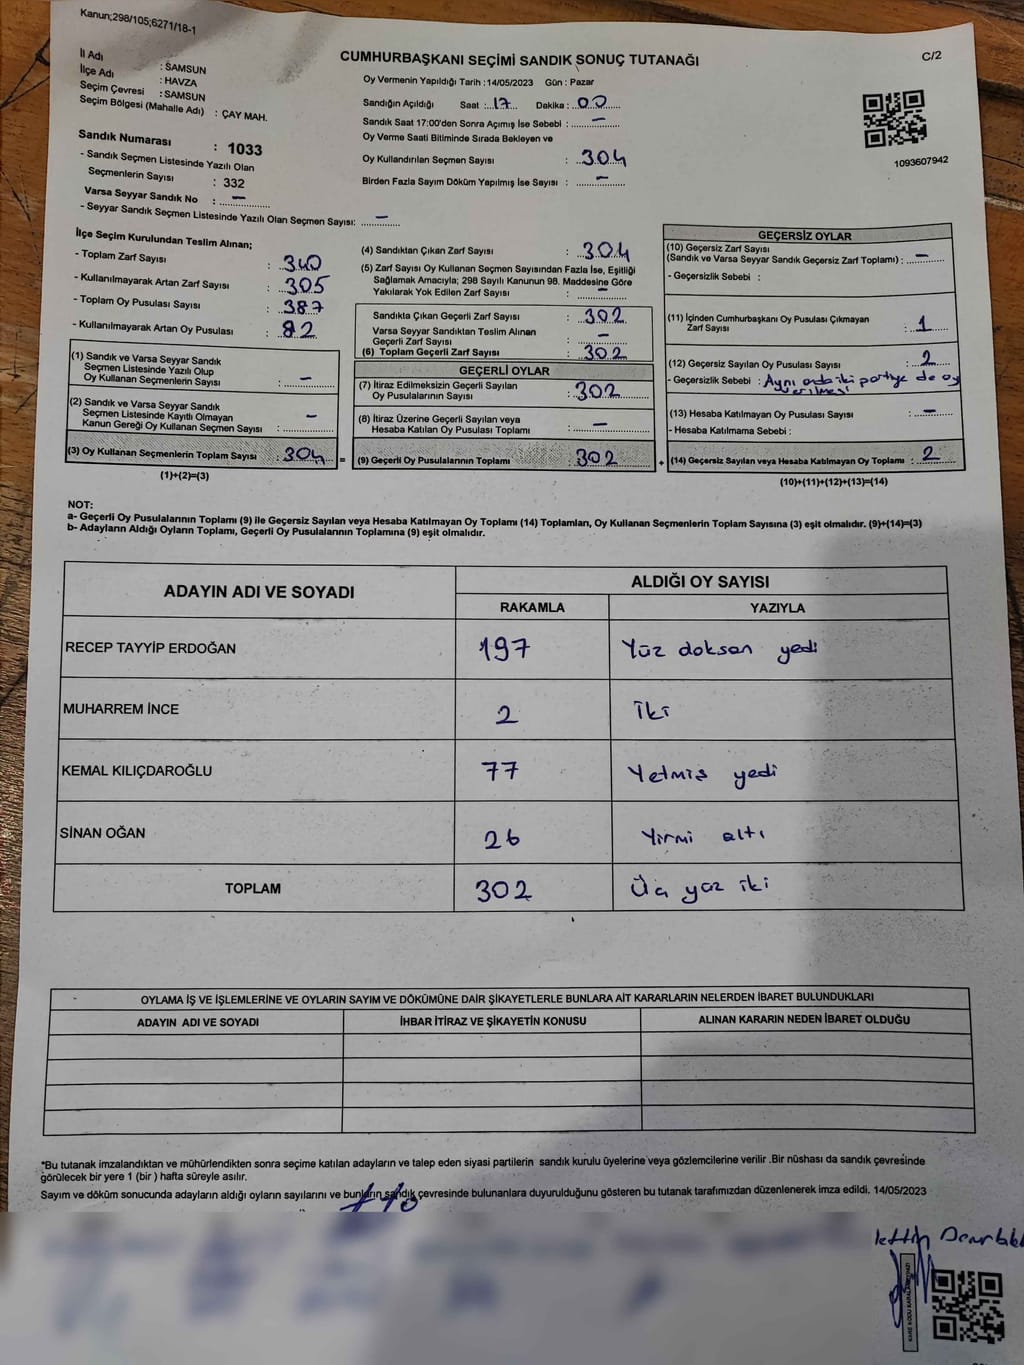 Kanun;298/105;6271/18-1
C/2
CUMHURBAŞKANI SEÇİMİ SANDIK SONUÇ TUTANAĞI
İl Adı : SAMSUN
İlçe Adı : HAVZA
Seçim Çevresi : SAMSUN
Seçim Bölgesi (Mahalle Adı) : ÇAY MAH.
Sandık Numarası : 1033
- Sandık Seçmen Listesinde Yazılı Olan
Seçmenlerin Sayısı : 332
Varsa Seyyar Sandık No : —
- Seyyar Sandık Seçmen Listesinde Yazılı Olan Seçmen Sayısı: —
Oy Vermenin Yapıldığı Tarih : 14/05/2023 Gün : Pazar
Sandığın Açıldığı Saat : 17 Dakika : 00
Sandık Saat 17:00'den Sonra Açımış İse Sebebi : —
Oy Verme Saati Bitiminde Sırada Bekleyen ve
Oy Kullandırılan Seçmen Sayısı : 304
Birden Fazla Sayım Döküm Yapılmış İse Sayısı : —
1093607942
İlçe Seçim Kurulundan Teslim Alınan;
- Toplam Zarf Sayısı : 340
- Kullanılmayarak Artan Zarf Sayısı : 305
- Toplam Oy Pusulası Sayısı : 387
- Kullanılmayarak Artan Oy Pusulası : 82
(1) Sandık ve Varsa Seyyar Sandık
Seçmen Listesinde Yazılı Olup
Oy Kullanan Seçmenlerin Sayısı : —
(2) Sandık ve Varsa Seyyar Sandık
Seçmen Listesinde Kayıtlı Olmayan
Kanun Gereği Oy Kullanan Seçmen Sayısı : —
(3) Oy Kullanan Seçmenlerin Toplam Sayısı : 304 =
(1)+(2)=(3)
(4) Sandıktan Çıkan Zarf Sayısı : 304
(5) Zarf Sayısı Oy Kullanan Seçmen Sayısından Fazla İse, Eşitliği
Sağlamak Amacıyla; 298 Sayılı Kanunun 98. Maddesine Göre
Yakılarak Yok Edilen Zarf Sayısı : —
Sandıkta Çıkan Geçerli Zarf Sayısı : 302
Varsa Seyyar Sandıktan Teslim Alınan
Geçerli Zarf Sayısı : —
(6) Toplam Geçerli Zarf Sayısı : 302
GEÇERLİ OYLAR
(7) İtiraz Edilmeksizin Geçerli Sayılan
Oy Pusulalarının Sayısı : 302
(8) İtiraz Üzerine Geçerli Sayılan veya
Hesaba Katılan Oy Pusulası Toplamı : —
(9) Geçerli Oy Pusulalarının Toplamı : 302 +
GEÇERSİZ OYLAR
(10) Geçersiz Zarf Sayısı
(Sandık ve Varsa Seyyar Sandık Geçersiz Zarf Toplamı) : —
- Geçersizlik Sebebi :
(11) İçinden Cumhurbaşkanı Oy Pusulası Çıkmayan
Zarf Sayısı : 1
(12) Geçersiz Sayılan Oy Pusulası Sayısı : 2
- Geçersizlik Sebebi : Aynı anda iki partiye de oy
verilmesi
(13) Hesaba Katılmayan Oy Pusulası Sayısı : —
- Hesaba Katılmama Sebebi :
(14) Geçersiz Sayılan veya Hesaba Katılmayan Oy Toplamı : 2
(10)+(11)+(12)+(13)=(14)
NOT:
a- Geçerli Oy Pusulalarının Toplamı (9) ile Geçersiz Sayılan veya Hesaba Katılmayan Oy Toplamı (14) Toplamları, Oy Kullanan Seçmenlerin Toplam Sayısına (3) eşit olmalıdır. (9)+(14)=(3)
b- Adayların Aldığı Oyların Toplamı, Geçerli Oy Pusulalarının Toplamına (9) eşit olmalıdır.
ADAYIN ADI VE SOYADI
ALDIĞI OY SAYISI
RAKAMLA YAZIYLA
RECEP TAYYİP ERDOĞAN 197 Yüz doksan yedi
MUHARREM İNCE 2 İki
KEMAL KILIÇDAROĞLU 77 Yetmiş yedi
SİNAN OĞAN 26 Yirmi altı
TOPLAM 302 Üç yüz iki
OYLAMA İŞ VE İŞLEMLERİNE VE OYLARIN SAYIM VE DÖKÜMÜNE DAİR ŞİKAYETLERLE BUNLARA AİT KARARLARIN NELERDEN İBARET BULUNDUKLARI
ADAYIN ADI VE SOYADI İHBAR İTİRAZ VE ŞİKAYETİN KONUSU ALINAN KARARIN NEDEN İBARET OLDUĞU
*Bu tutanak imzalandıktan ve mühürlendikten sonra seçime katılan adayların ve talep eden siyasi partilerin sandık kurulu üyelerine veya gözlemcilerine verilir .Bir nüshası da sandık çevresinde
görülecek bir yere 1 (bir ) hafta süreyle asılır.
Sayım ve döküm sonucunda adayların aldığı oyların sayılarını ve bunların sandık çevresinde bulunanlara duyurulduğunu gösteren bu tutanak tarafımızdan düzenlenerek imza edildi. 14/05/2023